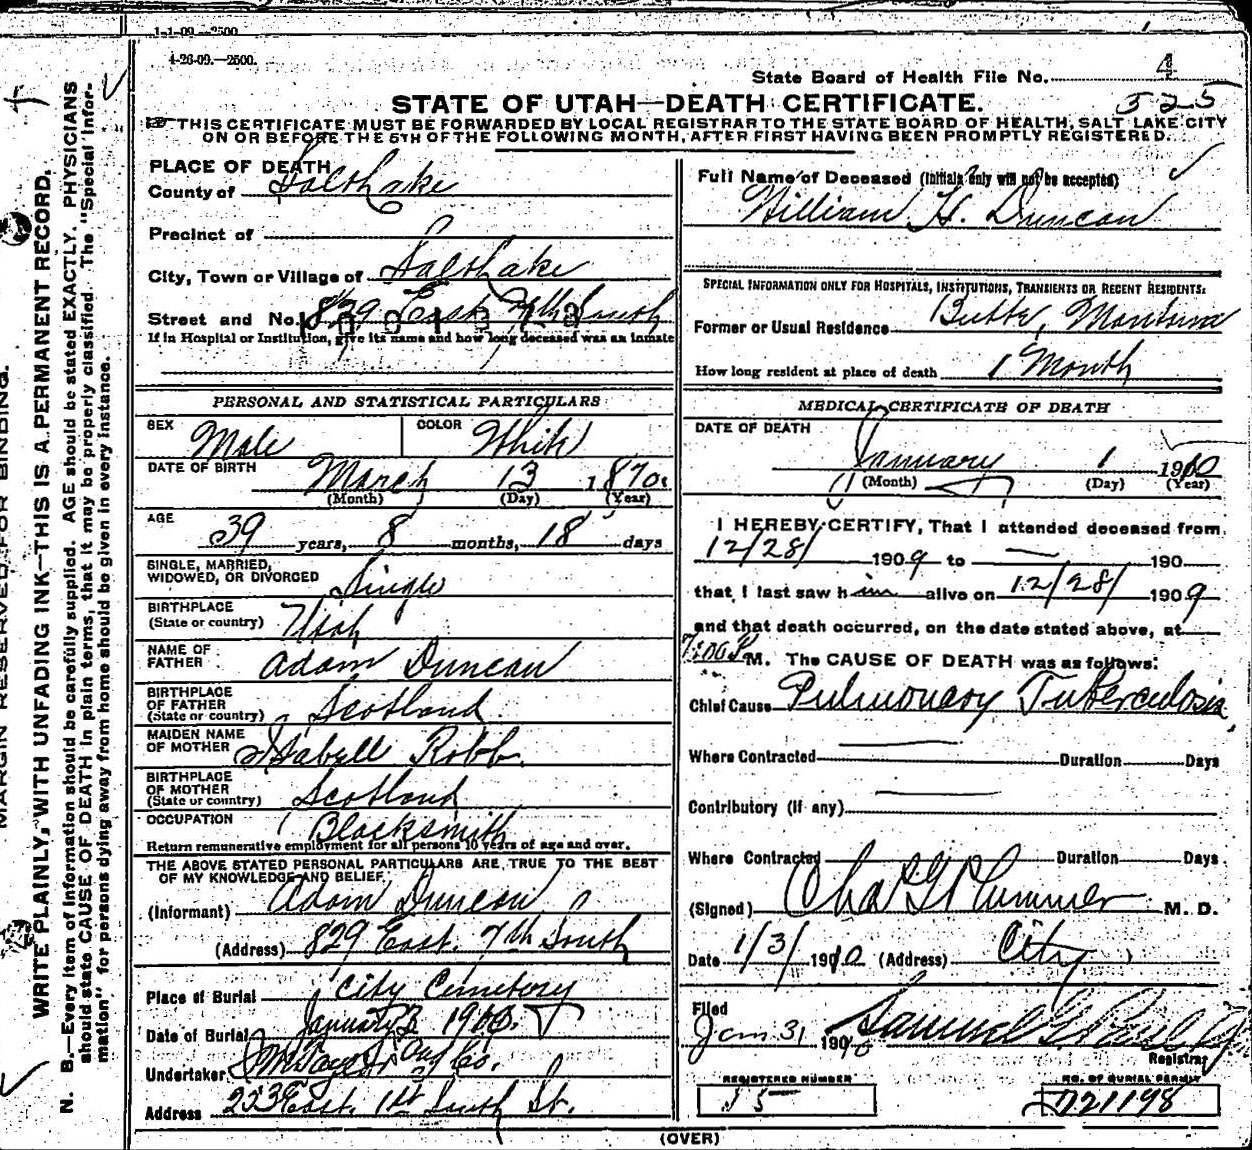 1-1-09.—2500.
4-26-09.—2500.
State Board of Health File No. 4
525
STATE OF UTAH—DEATH CERTIFICATE.
THIS CERTIFICATE MUST BE FORWARDED BY LOCAL REGISTRAR TO THE STATE BOARD OF HEALTH, SALT LAKE CITY
ON OR BEFORE THE 5TH OF THE FOLLOWING MONTH, AFTER FIRST HAVING BEEN PROMPTLY REGISTERED.
MARGIN RESERVED FOR BINDING.
WRITE PLAINLY, WITH UNFADING INK—THIS IS A PERMANENT RECORD.
N. B.—Every item of information should be carefully supplied. AGE should be stated EXACTLY. PHYSICIANS
should state CAUSE OF DEATH in plain terms, that it may be properly classified. The "Special Infor-
mation" for persons dying away from home should be given in every instance.
PLACE OF DEATH
County of Salt Lake
Precinct of
City, Town or Village of Salt Lake
Street and No. 829 East 7th South
If in Hospital or Institution, give its name and how long deceased was an inmate
PERSONAL AND STATISTICAL PARTICULARS
SEX Male COLOR White
DATE OF BIRTH March 13 1870
(Month) (Day) (Year)
AGE 39 years, 8 months, 18 days
SINGLE, MARRIED,
WIDOWED, OR DIVORCED Single
BIRTHPLACE
(State or country) Utah
NAME OF
FATHER Adam Duncan
BIRTHPLACE
OF FATHER
(State or country) Scotland
MAIDEN NAME
OF MOTHER Isabell Robb
BIRTHPLACE
OF MOTHER
(State or country) Scotland
OCCUPATION Blacksmith
Return remunerative employment for all persons 10 years of age and over.
THE ABOVE STATED PERSONAL PARTICULARS ARE TRUE TO THE BEST
OF MY KNOWLEDGE AND BELIEF
(Informant) Adam Duncan
(Address) 829 East. 7th South
Place of Burial City Cemetery
Date of Burial January 3 1910.
Undertaker Co.
Address 223 East. 1st South St.
Full Name of Deceased (Initials only will not be accepted)
William H. Duncan
SPECIAL INFORMATION ONLY FOR HOSPITALS, INSTITUTIONS, TRANSIENTS OR RECENT RESIDENTS:
Former or Usual Residence Butte, Montana
How long resident at place of death 1 Month
MEDICAL CERTIFICATE OF DEATH
DATE OF DEATH
January 1 1910
(Month) (Day) (Year)
I HEREBY CERTIFY, That I attended deceased from
12/28/ 1909 to — 190
that I last saw him alive on 12/28/ 1909
and that death occurred, on the date stated above, at
M. The CAUSE OF DEATH was as follows:
Chief Cause Pulmonary Tuberculosis,
Where Contracted Duration Days
Contributory (if any)
Where Contracted Duration Days
(Signed) Chas G Plummer M. D.
Date 1/3/ 1910 (Address) City
Filed
Jan 31 1910 Samuel G. Paul
Registrar
REGISTERED NUMBER
55
NO. OF BURIAL PERMIT
D21198
(OVER)